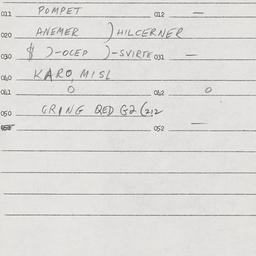 011 POMPET 012 —
020 ANEMER )HILCERNER
030 $ )-OCEP )-SVIRTE 031 —
040 KARO, MISL
041 0 042 0
050 GRING QED G2 (212
052 —